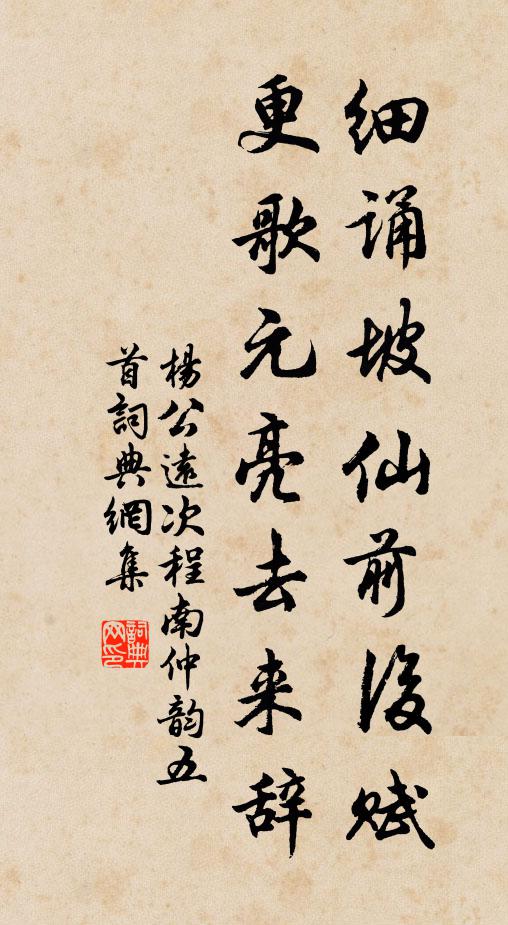 细诵坡仙前後赋
更歌元亮去来辞
楊公遠次程南仲韵五
首詞典網集
詞典
网印